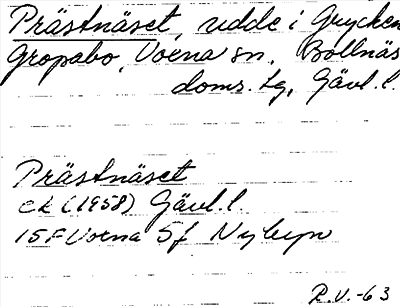 Prästnäset, udde i Grycken
Gropabo, Voxna sn. Bollnäs
doms.lg, Gävl.l.
Prästnäset
ek (1958) Gävl.l.
15F Voxna 5f Nybyn
R.V.-63